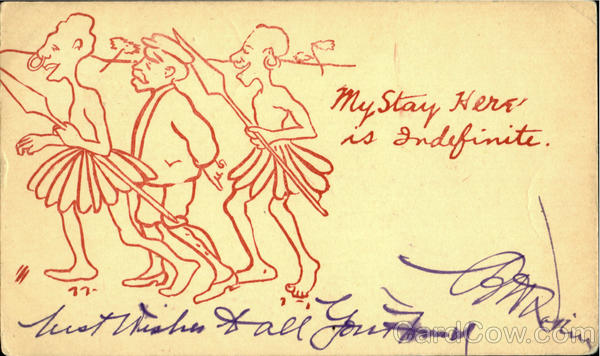 My Stay Here
is Indefinite.
Best Wishes to all Your Family
CardCow.com